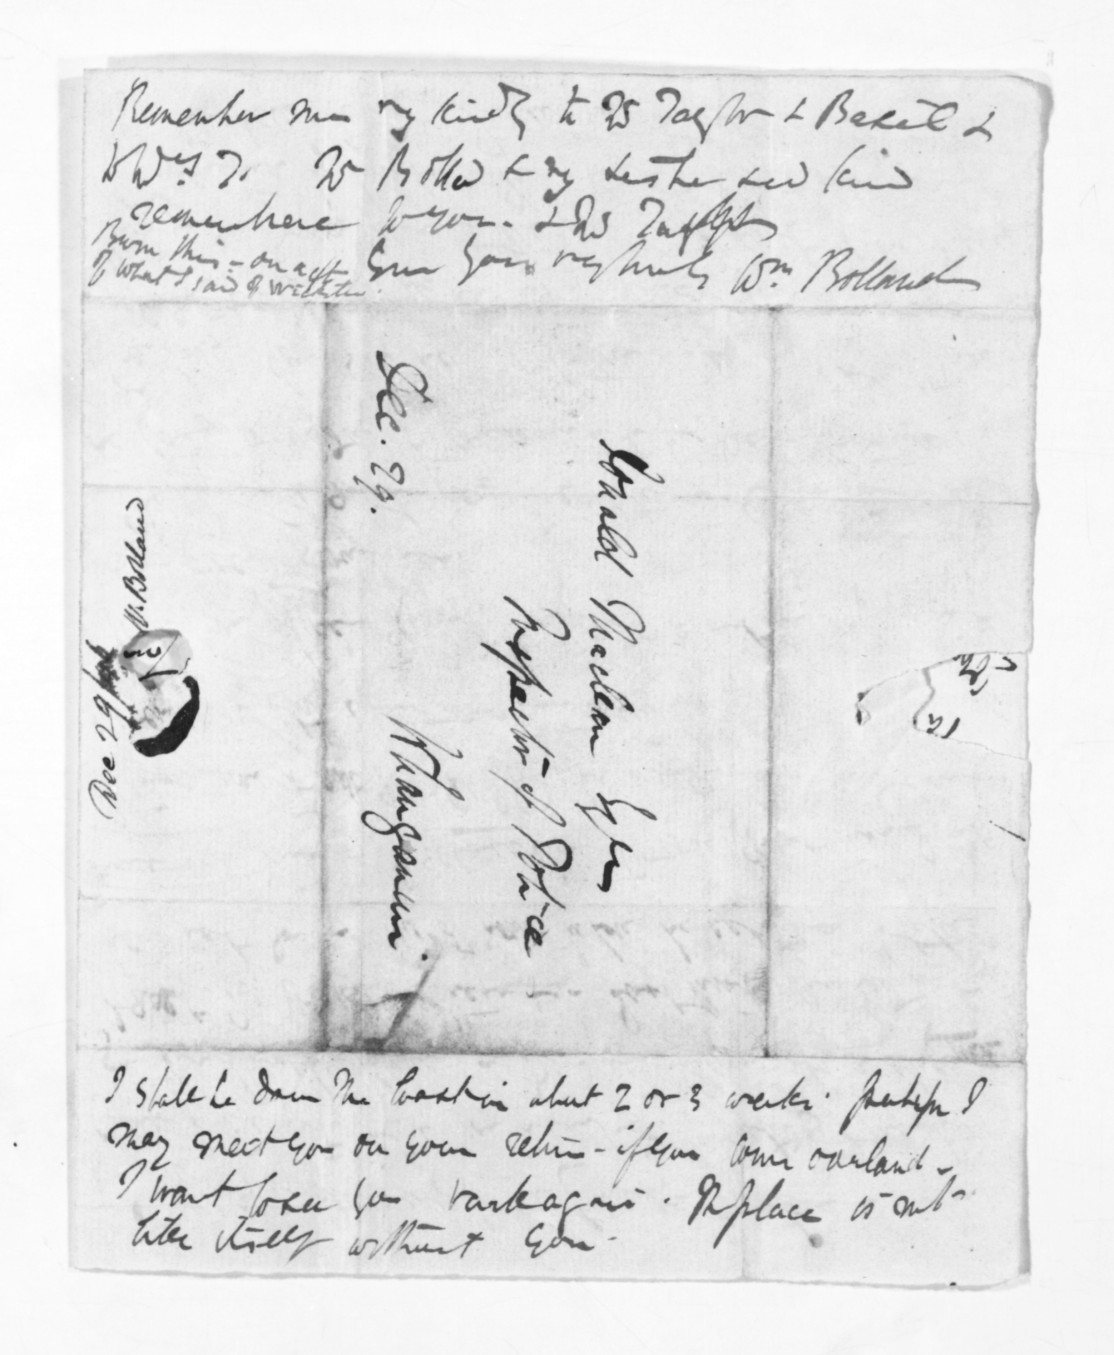 Remember me very kindly to Mr Taylor & Basil &
to Mrs T. Mr Bolland & my sister send kind
remembrance to you. & Mr Taylor
Burn this - on acct
of what I said of Webster
Ever yours very truly Wm Bolland
Dec. 29.
Donald Maclean Esqre
Inspector of Police
Whanganui.
W. Bolland
Dec 29/46
I shall be down the Coast in about 2 or 3 weeks. Perhaps I
may meet you on your return - if you come overland -
I want to see you back again. The place is not
like itself without you.